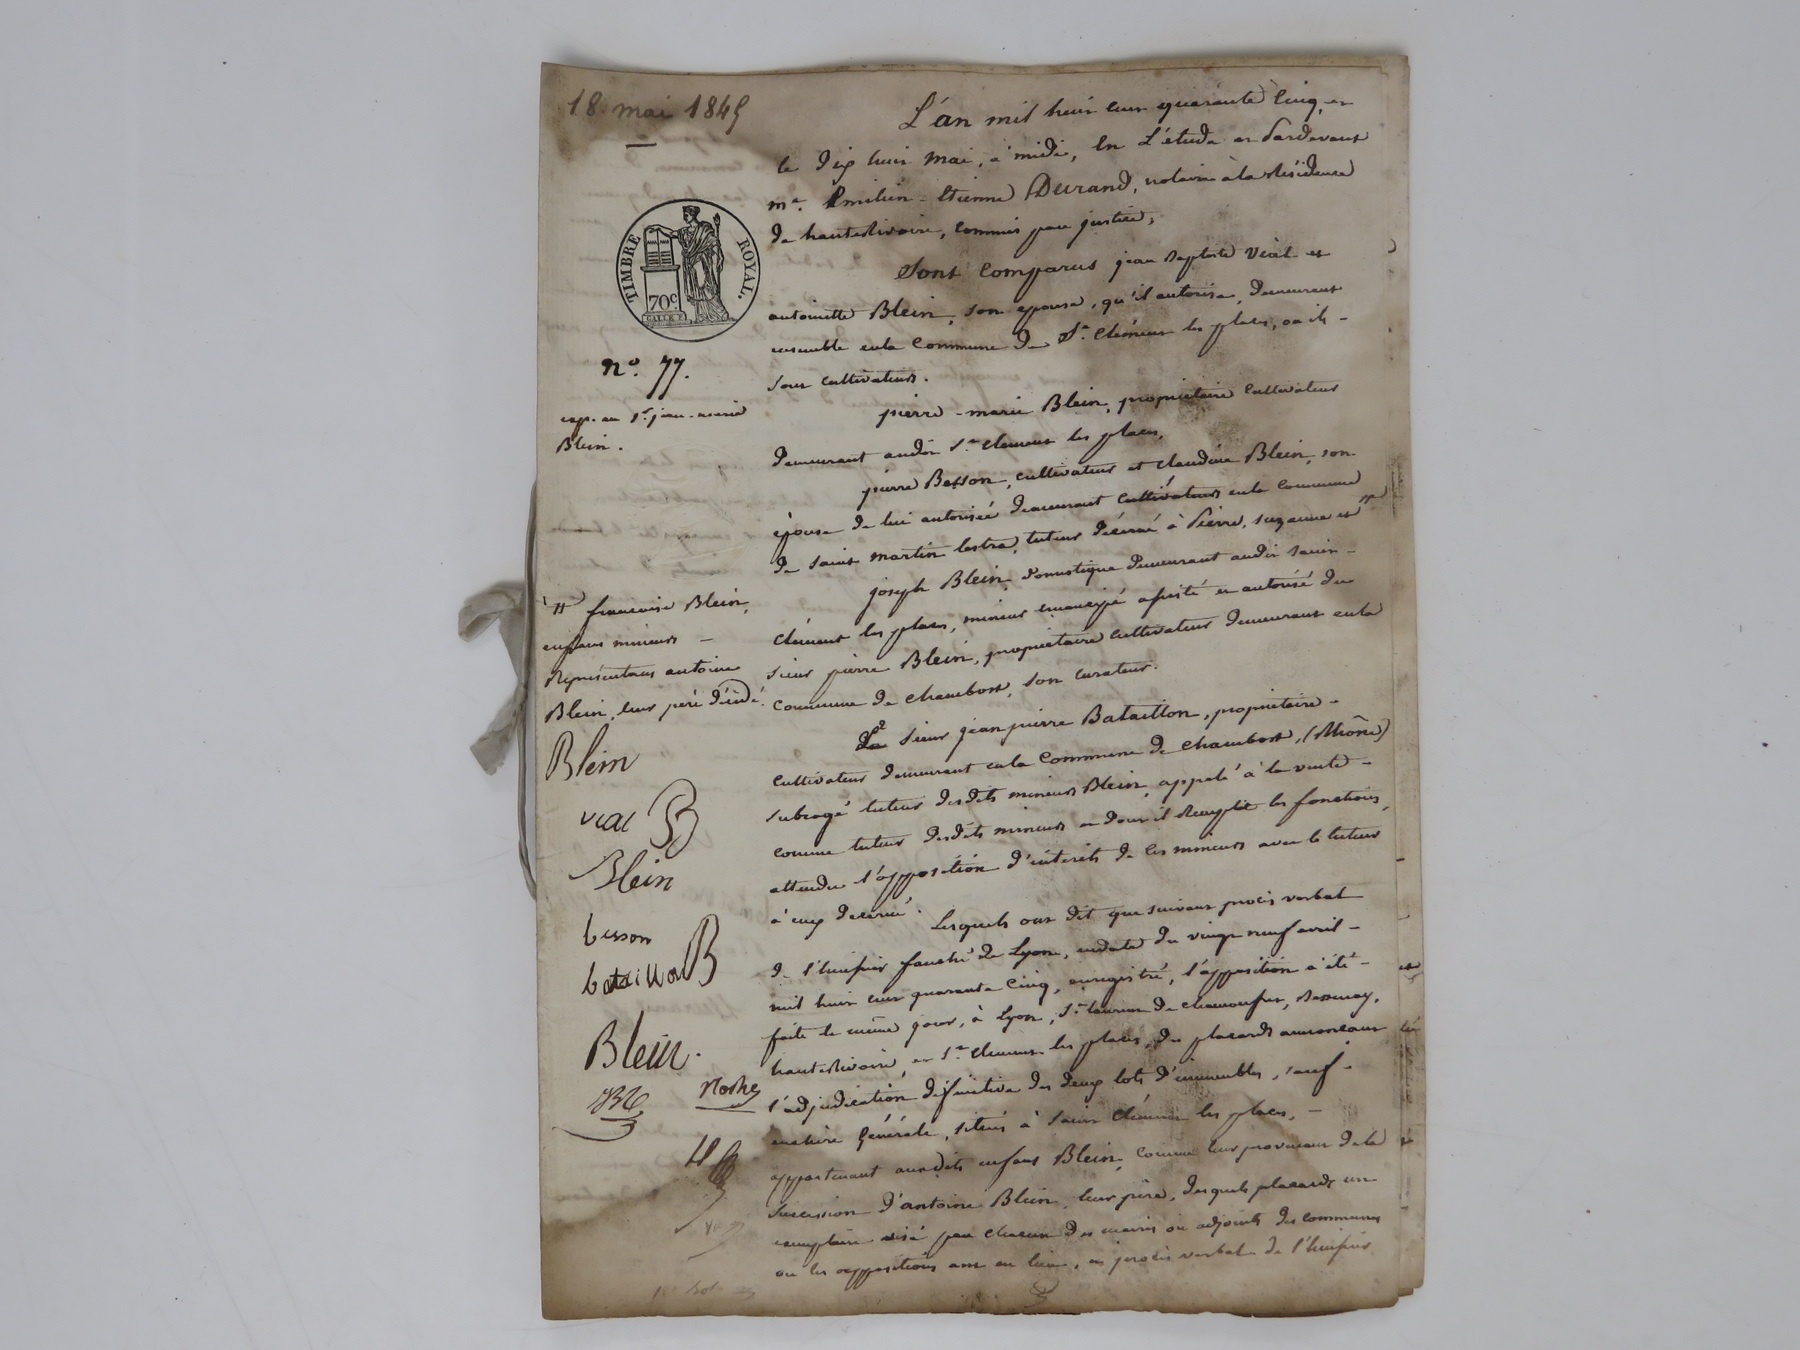 18. mai 1845
TIMBRE ROYAL.
70c
n.º 77.
exp. au Sr. jean-marie
Blein.
L'an mil huit cent quarante cinq, et
le dix huit mai, à midi, en L'étude et Pardevant
me. Emilien-Etienne Durand, notaire à la Résidence
de hauterivoire, commis par justice;
Sont Comparus jean Baptiste Vial et
antoinette Blein, son épouse, qu'il autorise, demeurant
ensemble en la Commune de St. Clément les places, où ils
sont cultivateurs.
pierre-marie Blein, propriétaire cultivateur
demeurant audit St. Clément les places,
pierre Besson, cultivateur et claudine Blein, son
épouse de lui autorisée demeurant cultivateurs en la Commune
de Saint martin lestra, tuteur décerné à Pierre, suzanne et #
joseph Blein, domestique demeurant audit Saint
Clément les places, mineur émancipé assisté et autorisé du
sieur pierre Blein, propriétaire cultivateur demeurant en la
Commune de Chambost, son curateur.
Le Sieur jean pierre Bataillon, propriétaire
cultivateur demeurant en la Commune de Chambost, (Rhône)
subrogé tuteur desdits mineurs Blein, appelé à la vente
comme tuteur desdits mineurs et dont il Remplit les fonctions,
attendu l'opposition d'intérêts de ces mineurs avec le tuteur
à eux décerné.
Lesquels ont dit que suivant procès verbal
de l'huissier de Lyon, en date du vingt neuf avril
mil huit cent quarante cinq, enregistré, l'apposition a été
faite le même jour, à Lyon, St. Laurent de chamousset, Bessenay,
hauterivoire, et St. Clément les places, des placards annonçant
l'adjudication définitive des deux lots d'immeubles, sauf
enchère Générale, situés à Saint Clément les places,
appartenant auxdits enfans Blein, comme leur provenant de la
succession d'antoine Blein, leur père, desquels placards un
exemplaire visé par chacun des maires ou adjoints des communes
où les appositions ont eu lieu, et procès verbal de l'huissier
# françoise Blein,
enfans mineurs
Représentans antoine
Blein, leur père décédé.
Blein
vial B
Blein
besson
bataillon B
Blein.